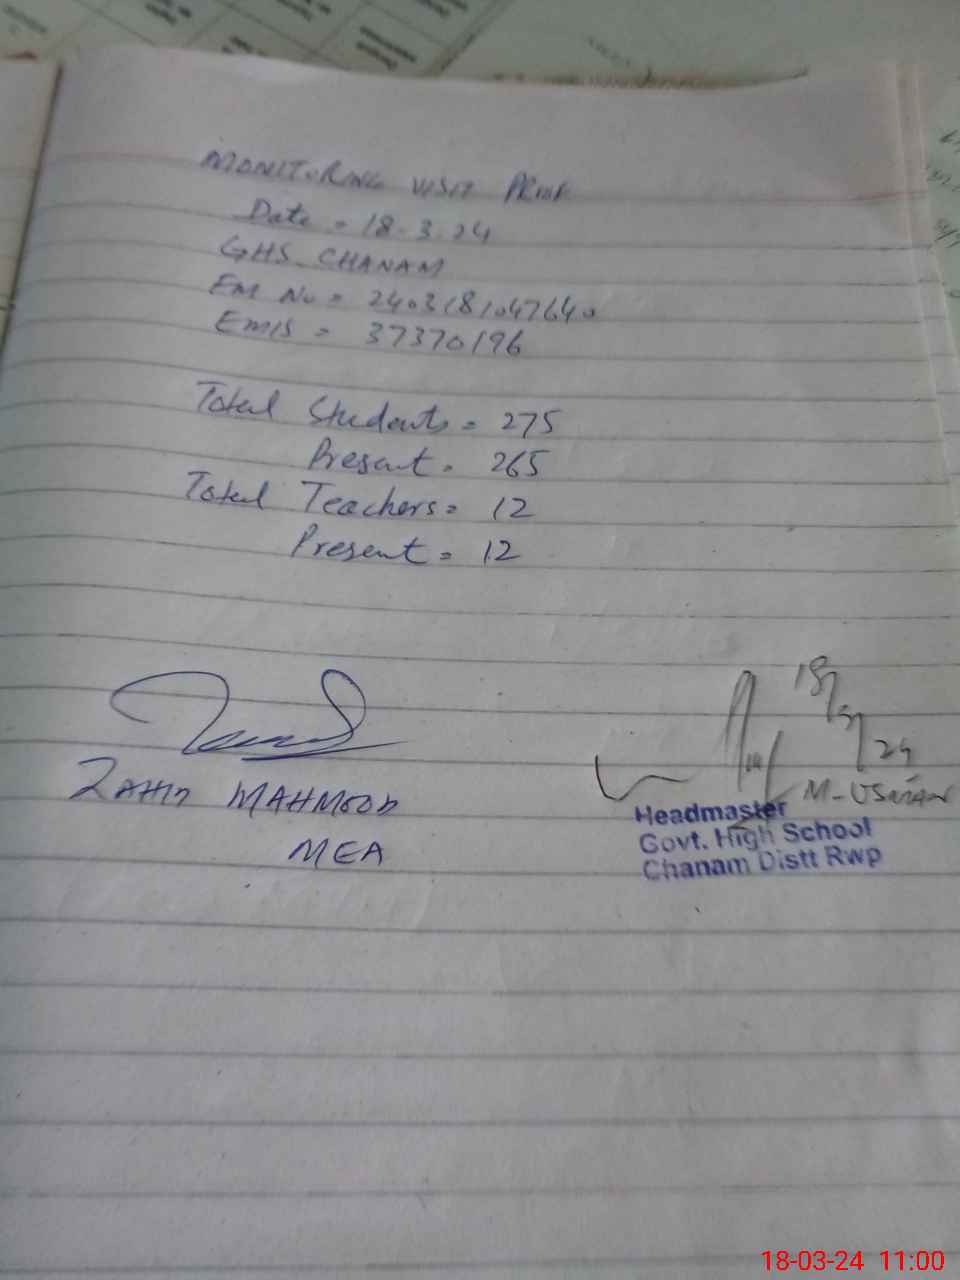 MONITORING VISIT PROOF
Date = 18.3.24
GHS CHANAM
EM No = 2403181047640
EMIS = 37370196
Total Students = 275
Present = 265
Total Teachers = 12
Present = 12
18/3/24
ZAHID MAHMOOD
MEA
M-USMAN
Headmaster
Govt. High School
Chanam Distt Rwp
18-03-24 11:00